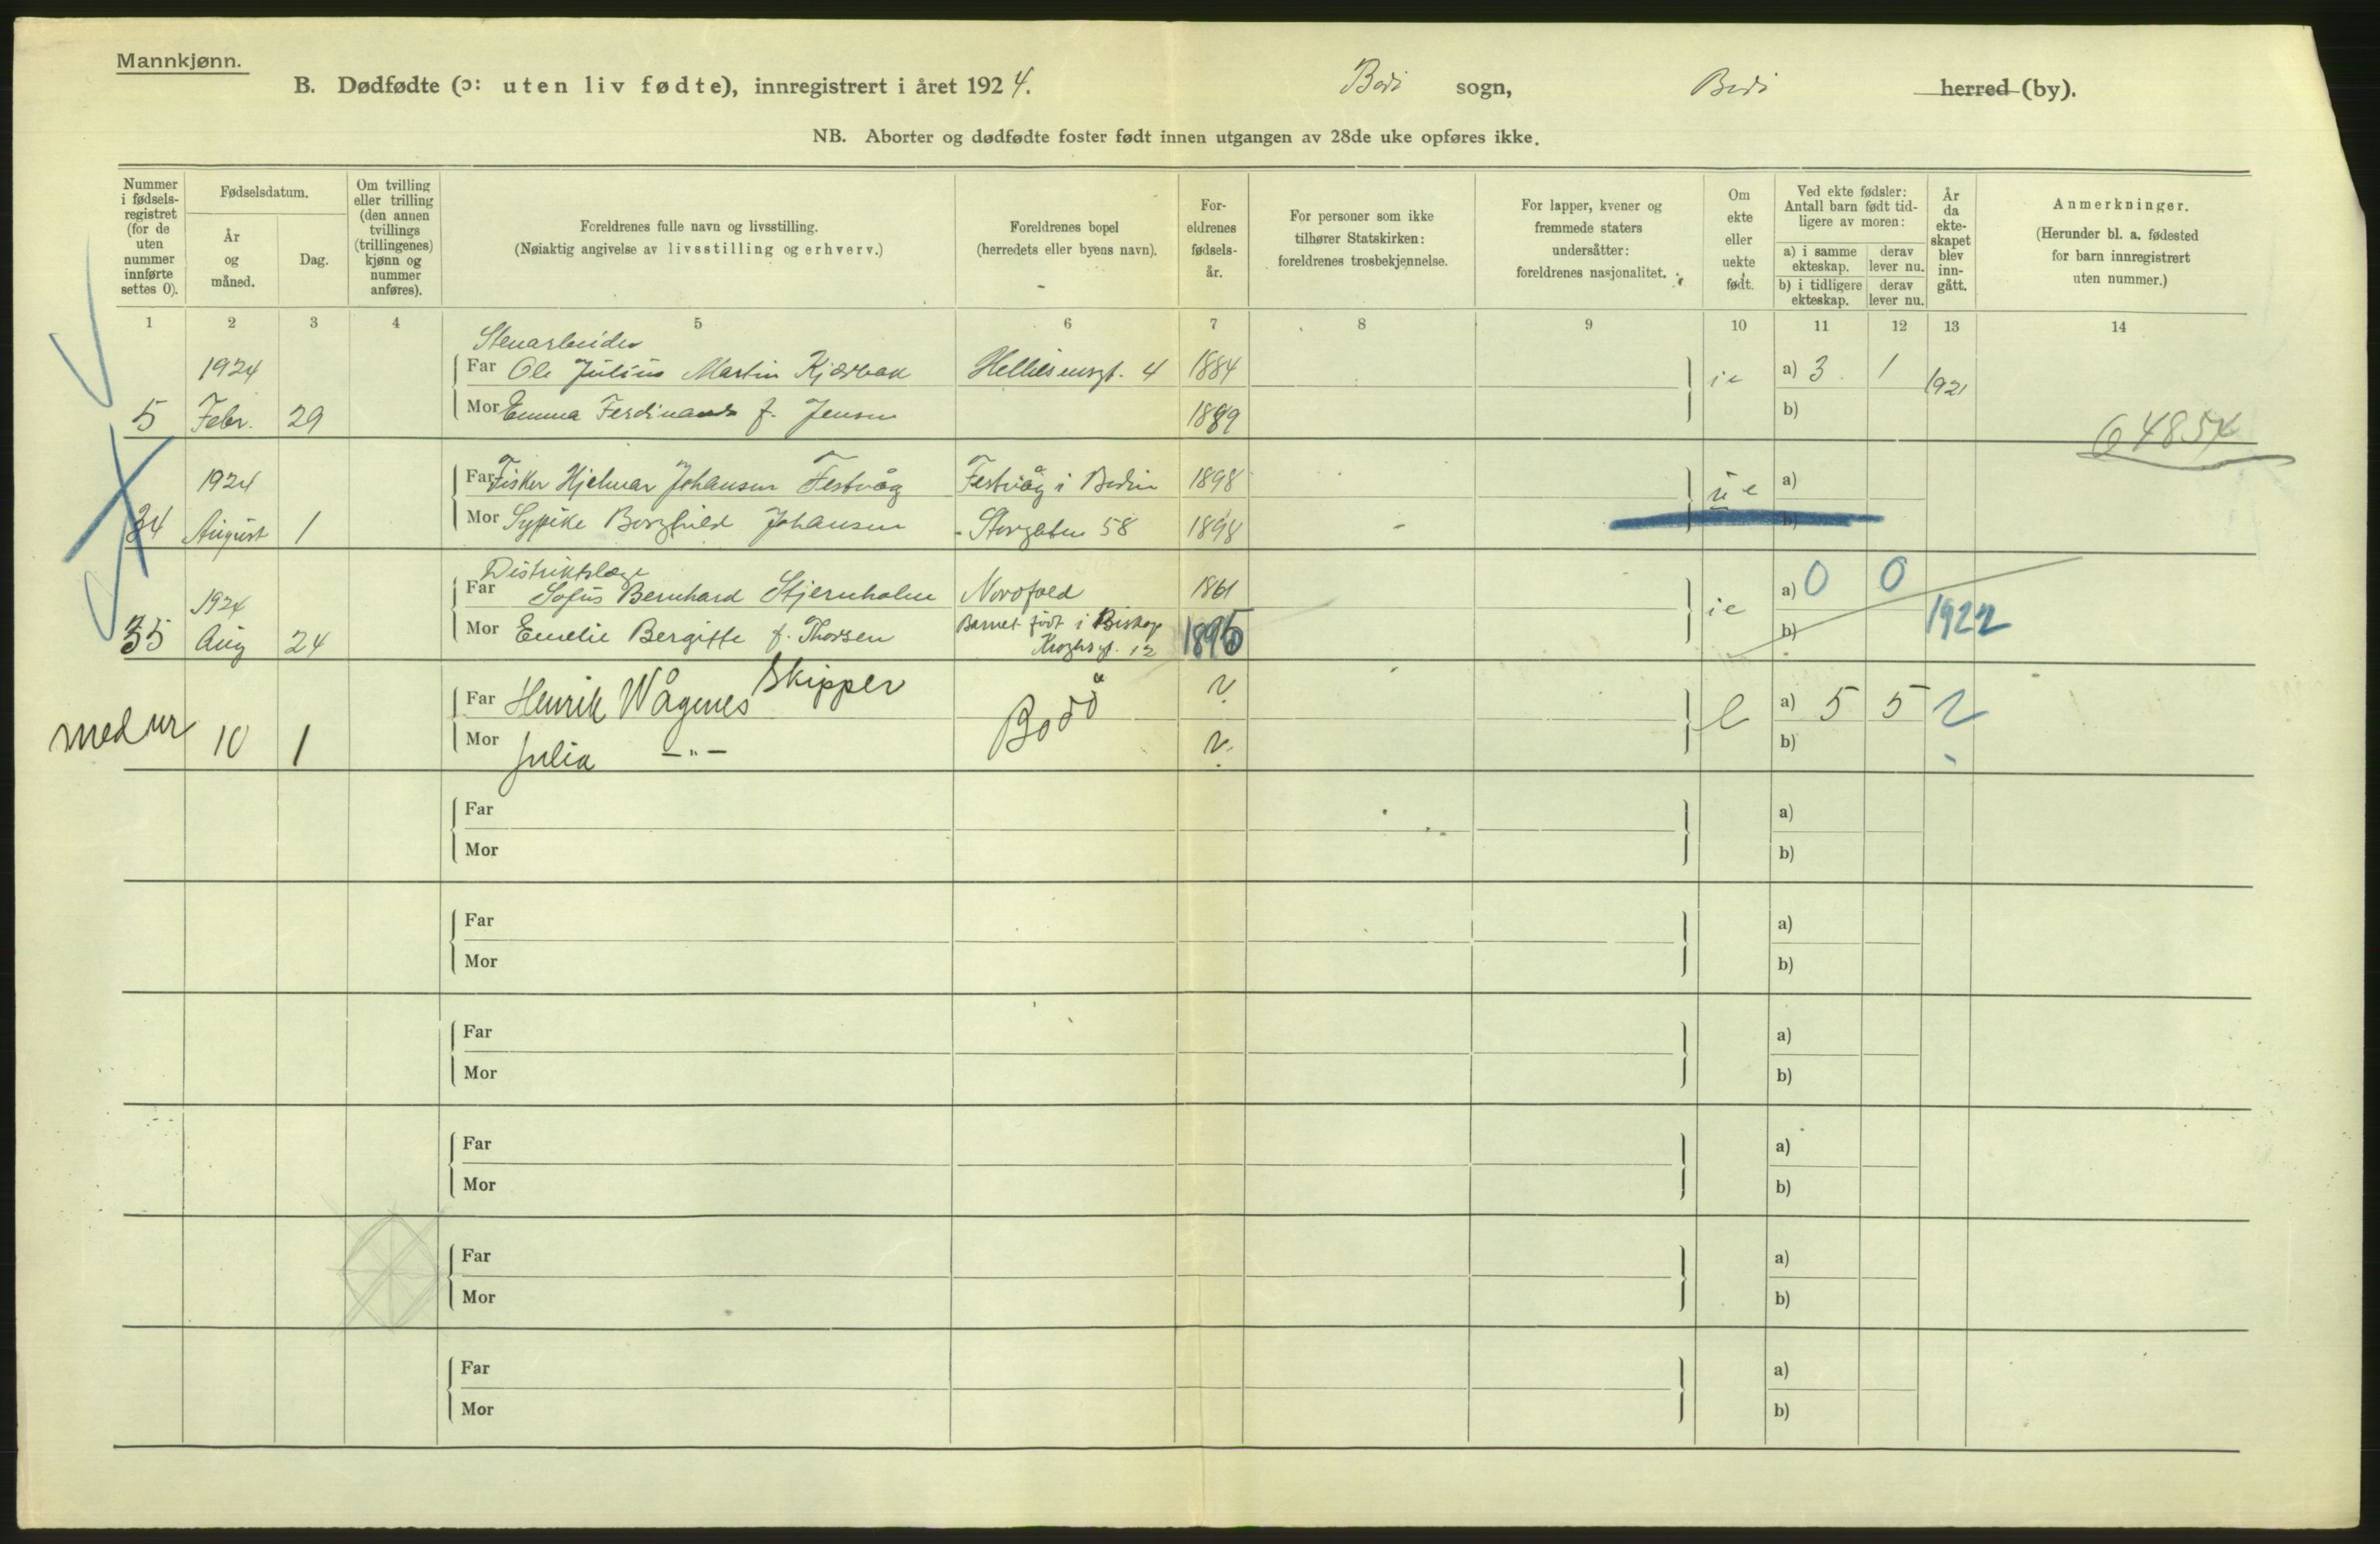 Mannkjønn.
B. Dødfødte (ɔ: uten liv fødte), innregistrert i året 1924. Bodø sogn, Bodø herred (by).
NB. Aborter og dødfødte foster født innen utgangen av 28de uke opføres ikke.
Nummer i fødsels-registret (for de uten nummer innførte settes 0).
Fødselsdatum.
År og måned.
Dag.
Om tvilling eller trilling (den annen tvillings (trillingenes) kjønn og nummer anføres).
Foreldrenes fulle navn og livsstilling.
(Nøiaktig angivelse av livsstilling og erhverv.)
Foreldrenes bopel
(herredets eller byens navn).
For-eldrenes fødsels-år.
For personer som ikke tilhører Statskirken: foreldrenes trosbekjennelse.
For lapper, kvener og fremmede staters undersåtter: foreldrenes nasjonalitet.
Om ekte eller uekte født.
Ved ekte fødsler: Antall barn født tid-ligere av moren:
a) i samme ekteskap.
derav lever nu.
b) i tidligere ekteskap.
derav lever nu.
År da ekte-skapet blev inn-gått.
Anmerkninger.
(Herunder bl. a. fødested for barn innregistrert uten nummer.)
1 2 3 4 5 6 7 8 9 10 11 12 13 14
Stenarbeider
1924 Far Ole Julius Martin Kjærbak 1884 a) 3 1 1921
5 Febr. 29 Mor Emma Ferdinande f. Jensen 1889 b)
6485x
1924 Far Fisker Hjelmar Johansen Festvåg Festvåg i Bodin 1898 ue a)
34 August 1 Mor Borghild Johansen Storgaten 58 1898 b)
Distriktslæge
1924 Far Sofus Bernhard Stjernholm Nordfold 1861 a) 0 0
35 Aug 24 Mor Emelie Bergitte f. Thorsen Barnet født i Biskop 1895 b) 1922
Kroghsgt. 12
Skipper
Far Henrik Wågenes Bodø ? e a) 5 5 ?
10 1 Mor Julia —"— ? b)
Far a)
Mor b)
Far a)
Mor b)
Far a)
Mor b)
Far a)
Mor b)
Far a)
Mor b)
Far a)
Mor b)